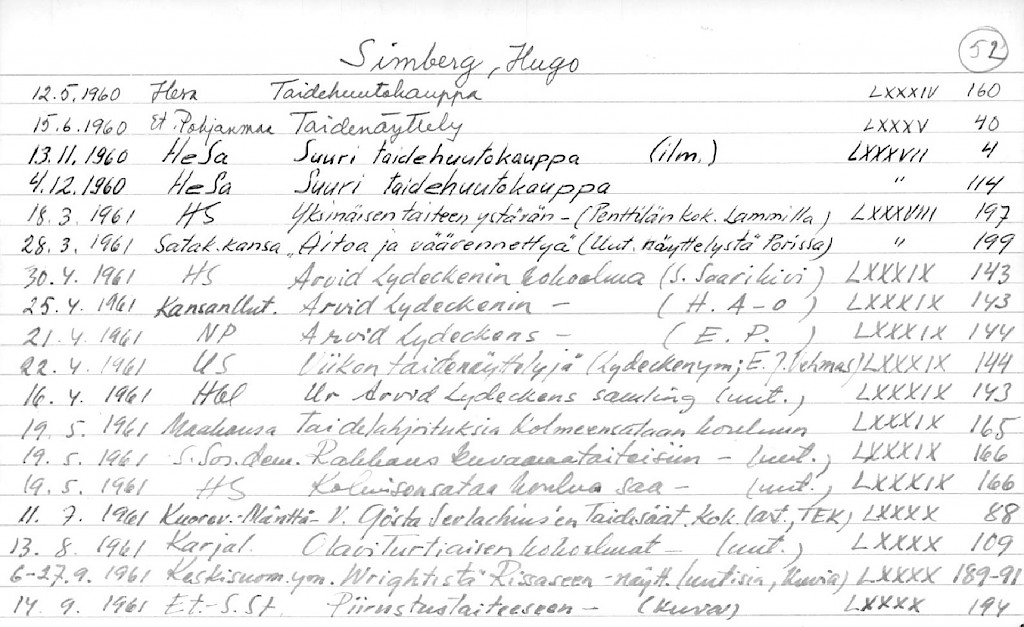 Simberg, Hugo 52
12.5.1960 Hesa Taidehuutokauppa LXXXIV 160
15.6.1960 Et. Pohjanmaa Taidenäyttely LXXXV 40
13.11.1960 HeSa Suuri taidehuutokauppa (ilm.) LXXXVII 4
4.12.1960 HeSa Suuri taidehuutokauppa " 114
18.3.1961 HS Yksinäisen taiteen ystävän - (Penttilän kok. Lammilla) LXXXVIII 197
28.3.1961 Satak. kansa "Aitoa ja väärennettyä" (Uut. näyttelystä Porissa) " 199
30.4.1961 HS Arvid Lydeckenin kokoelma (S. Saarikivi) LXXXIX 143
25.4.1961 Kansan Uut. Arvid Lydeckenin - (H. A-o) LXXXIX 143
21.4.1961 NP Arvid Lydeckens - (E. P.) LXXXIX 144
22.4.1961 US Viikon taidenäyttelyjä (Lydecken ym; E. J. Vehmas) LXXXIX 144
16.4.1961 Hbl Ur Arvid Lydeckens samling (uut.) LXXXIX 143
19.5.1961 Maakansa Taidelahjoituksia kolmeensataan kouluun LXXXIX 165
19.5.1961 S. Sos. dem. Rakkaus kuvaamataiteisiin - (uut.) LXXXIX 166
19.5.1961 HS Kolmisensataa koulua saa - (uut.) LXXXIX 166
11.7.1961 Kuorev.-Mänttä-V. Gösta Serlachius'en Taidesäät. Kok. (art., TEK) LXXXX 88
13.8.1961 Karjal. Olavi Turtiaisen kokoelmat - (uut.) LXXXX 109
6-27.9.1961 Keskisuom. ym. Wrightistä Rissaseen -näytt. (uutisia, kuvia) LXXXX 189-91
14.9.1961 Et.-S. St. Piirustustaiteeseen - (kuva) LXXXX 194